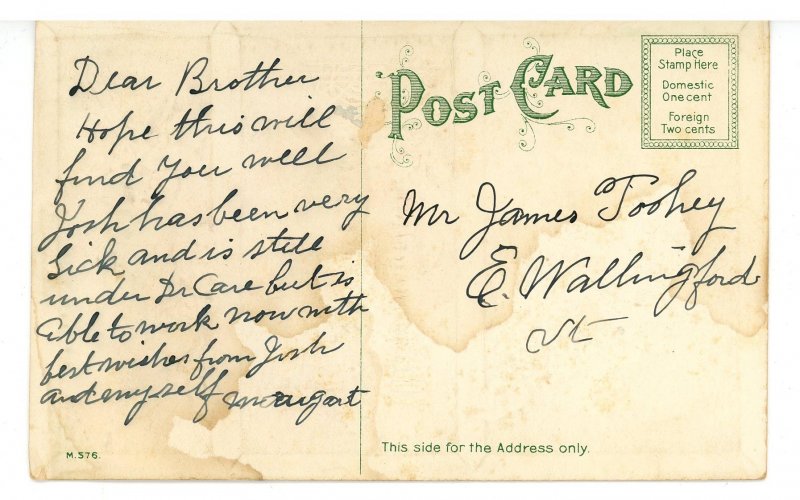 Dear Brother
Hope this will
find you well
Josh has been very
Sick and is still
under Dr Care but is
able to work now with
best wishes from Josh
and myself Margart
M.576.
POST CARD
Place
Stamp Here
Domestic
One cent
Foreign
Two cents
Mr James Toohey
E. Wallingford
Vt
This side for the Address only.